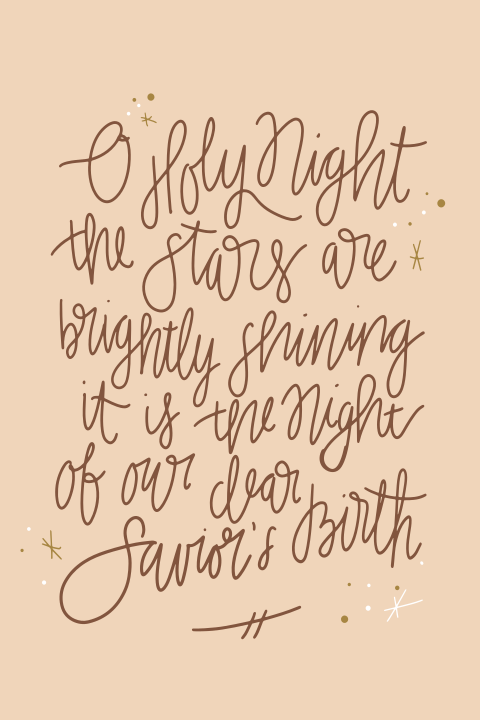 O Holy Night
the stars are
brightly shining
it is the Night
of our dear
Savior's Birth